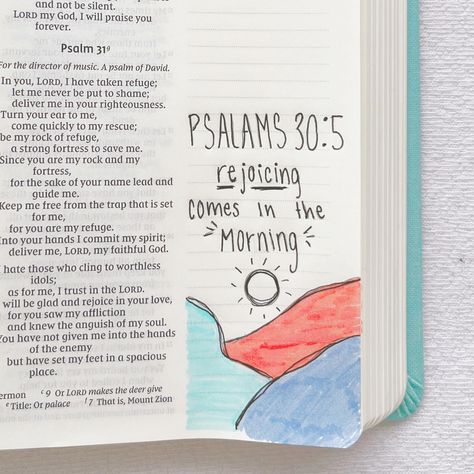 and not be silent.
LORD my God, I will praise you
forever.
Psalm 31g
For the director of music. A psalm of David.
In you, LORD, I have taken refuge;
let me never be put to shame;
deliver me in your righteousness.
Turn your ear to me,
come quickly to my rescue;
be my rock of refuge,
a strong fortress to save me.
Since you are my rock and my
fortress,
for the sake of your name lead and
guide me.
Keep me free from the trap that is set
for me,
for you are my refuge.
Into your hands I commit my spirit;
deliver me, LORD, my faithful God.
hate those who cling to worthless
idols;
as for me, I trust in the LORD.
will be glad and rejoice in your love,
for you saw my affliction
and knew the anguish of my soul.
You have not given me into the hands
of the enemy
but have set my feet in a spacious
place.
ermon e9 Or LORD makes the deer give
g Title: Or palace i7 That is, Mount Zion
PSALAMS 30:5
rejoicing
comes in the
Morning